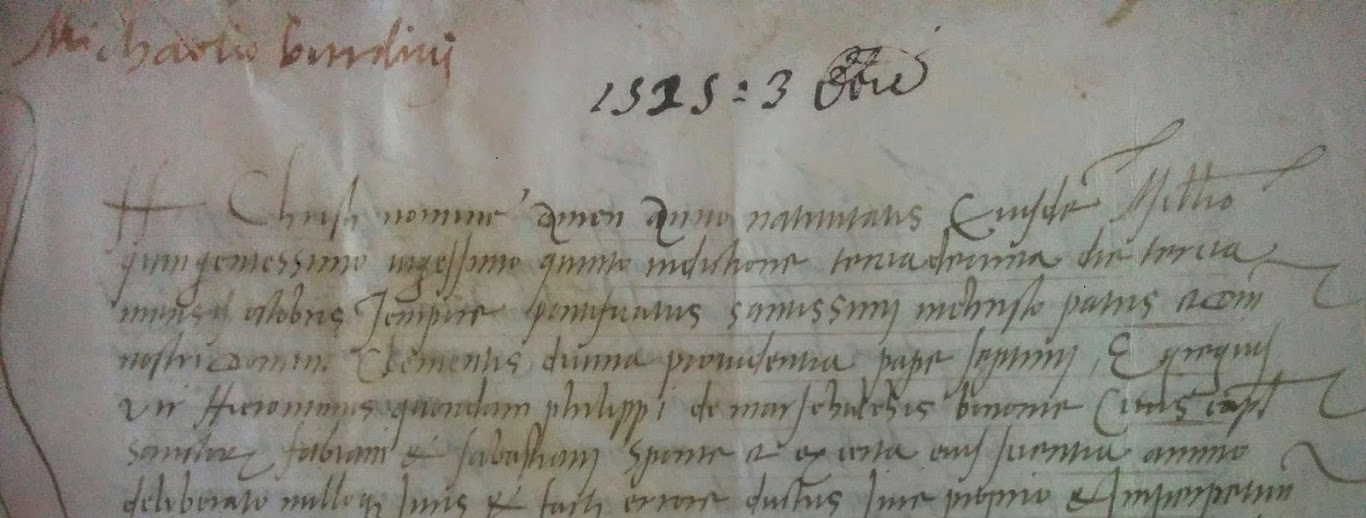 Michaelis burdini
1525 : 3 8bre
In Christi nomine amen Anno nativitatis Eiusdē Mill͞io
quingentessimo vigessimo quinto indictione terciadecima die tercia
mensis octobris Tempore pontificatus sanctissimi in christo patris et dom
nostri domini Clementis divina providentia pape septimi, Egregius
vir Hieronimus quondam philippi de marschalchis bononie Civis capl
Sanctorum fabiani et sabastiani sponte et ex certa eius scientia animo
deliberato nulloq Juris et facti errore ductus Jure proprio et Imperpetuum